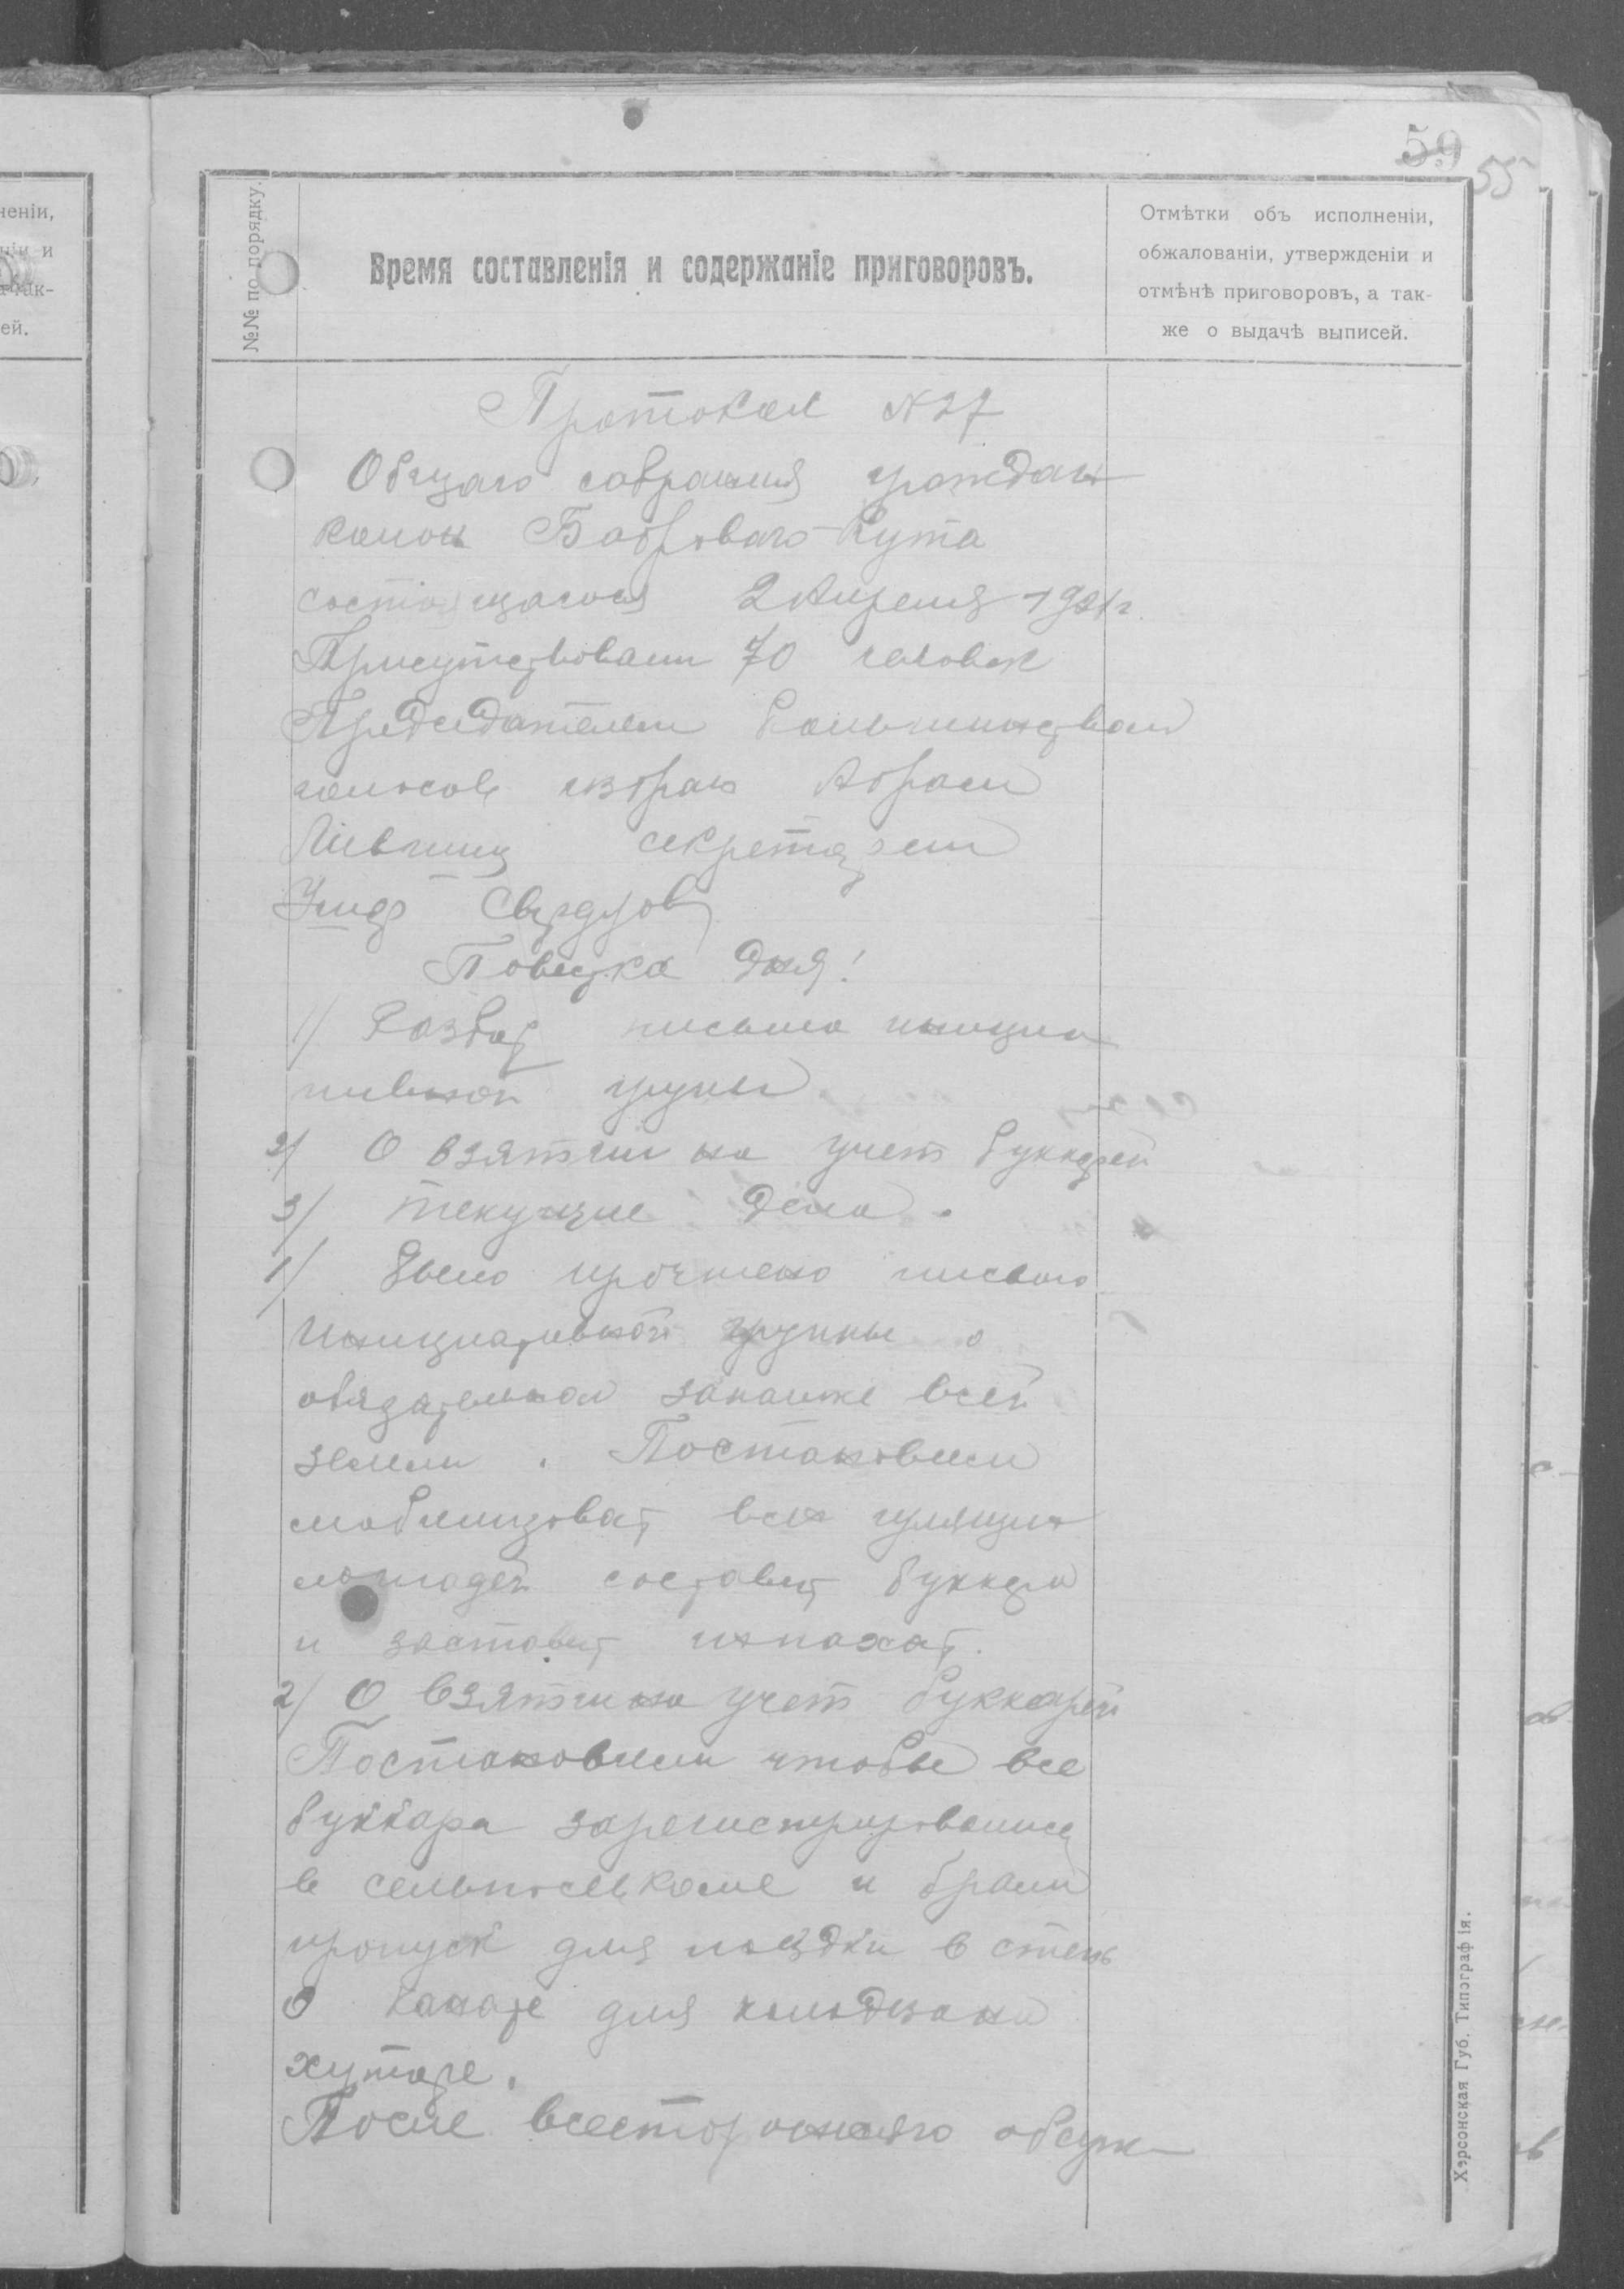 59
55
№№ по порядку.
Время составленія и содержаніе приговоровъ.
Отмѣтки объ исполненіи,
обжалованіи, утвержденіи и
отмѣнѣ приговоровъ, а так-
же о выдачѣ выписей.
Протокол N 27
Общаго собрания граждан
колон Боброваго-Кута
состоящагося 2 Апреля 1921 г.
Присутствовали 70 человек
Председателем большинством
голосов избран Абрам
Лившиц секретарем
Свердлов
Повестка дня!
1/ Разбор письма иници
тивной групы
2/ О взятии на учет буккарей
3/ текущие дела.
1/ Было прочтено письмо
Инициативной группы о
обязательном запашке всей
земли. Постановили
мобилизоват всех гулящих
лошадей составит буккера
и заставит испахат.
2/ О взятии на учет буккарей
Постановили чтобы все
буккара зарегистрировались
в сельпосевкоме и брали
пропуск для поездки в степь
О канате для колодца на
хуторе.
После всестороннего обсуж-
Херсонская Губ. Типографія.
неніи,
ніи и
а так-
ей.